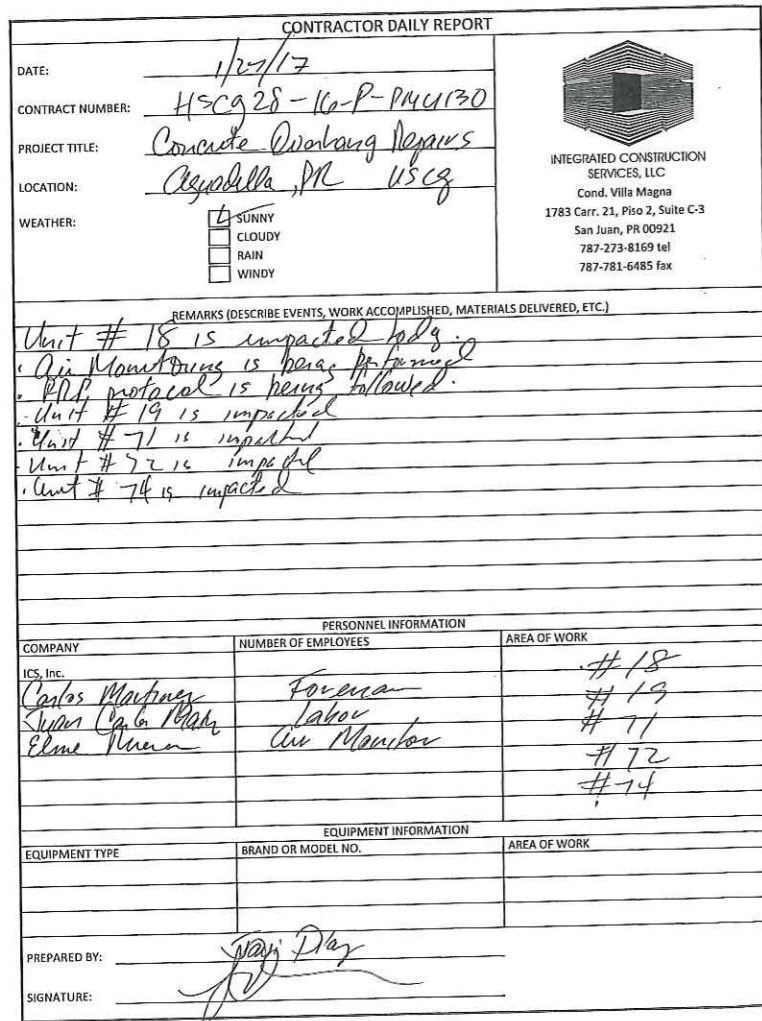 CONTRACTOR DAILY REPORT
DATE: 1/27/17
CONTRACT NUMBER: HSCG28-16-P-PMU130
PROJECT TITLE: Concrete Overhang Repairs
LOCATION: Aguadilla, PR USCG
WEATHER:
SUNNY
CLOUDY
RAIN
WINDY
INTEGRATED CONSTRUCTION
SERVICES, LLC
Cond. Villa Magna
1783 Carr. 21, Piso 2, Suite C-3
San Juan, PR 00921
787-273-8169 tel
787-781-6485 fax
REMARKS (DESCRIBE EVENTS, WORK ACCOMPLISHED, MATERIALS DELIVERED, ETC.)
Unit # 18 is impacted today.
. Air Monitoring is being performed
. RRP protocol is being followed.
. Unit # 19 is impacted
. Unit # 71 is impacted
. Unit # 72 is impacted
. Unit # 74 is impacted
PERSONNEL INFORMATION
COMPANY NUMBER OF EMPLOYEES AREA OF WORK
ICS, Inc. # 18
Carlos Martinez Foreman # 19
Juan Carlos Labor # 71
Air Monitor # 72
# 74
EQUIPMENT INFORMATION
EQUIPMENT TYPE BRAND OR MODEL NO. AREA OF WORK
PREPARED BY: Diaz
SIGNATURE: